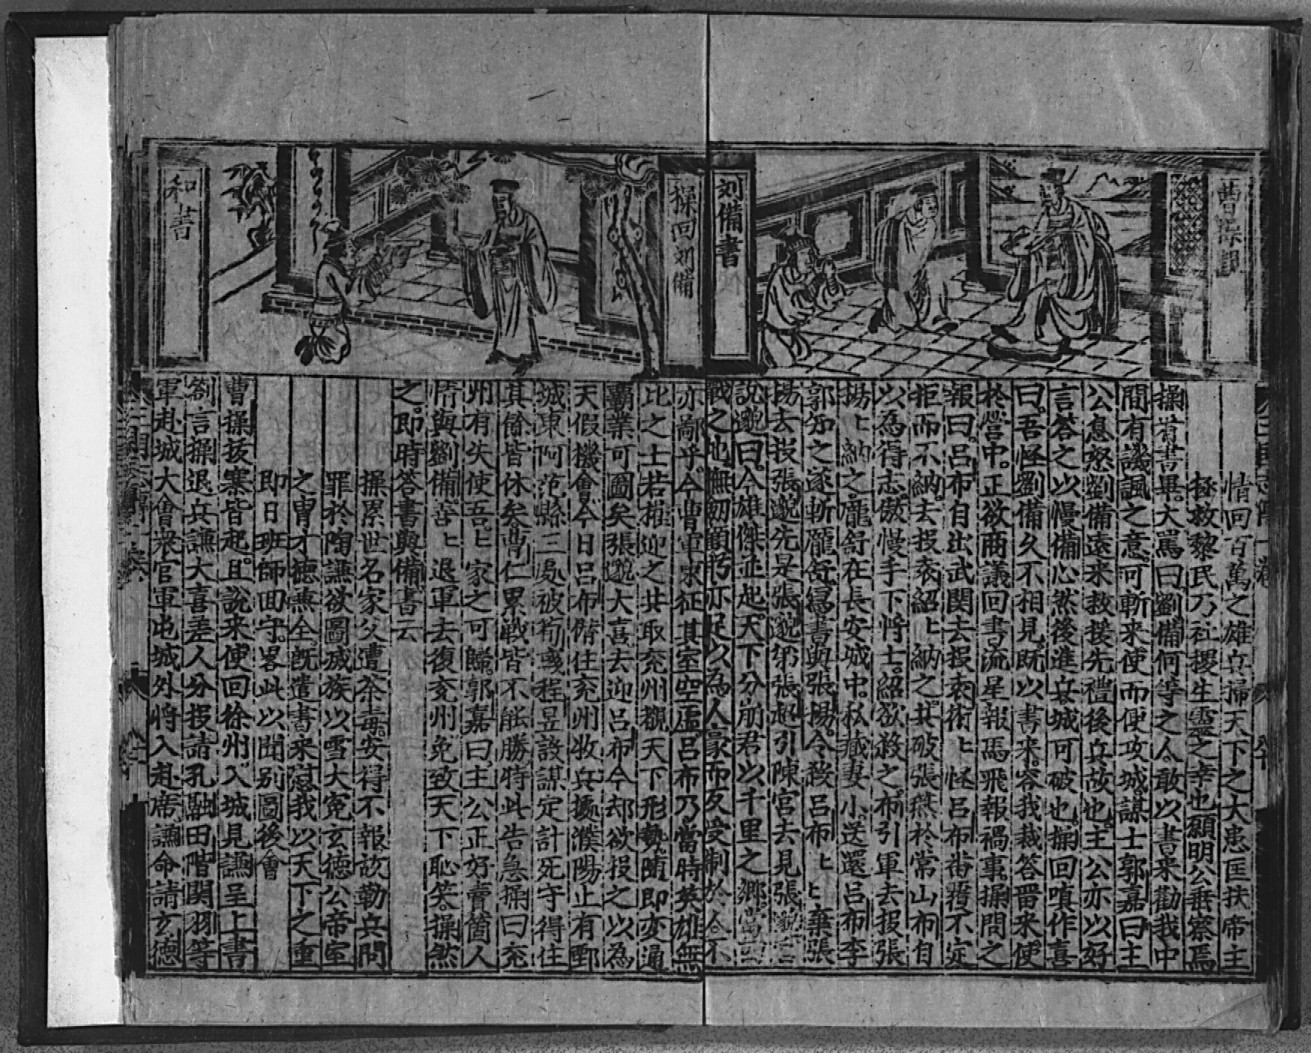 曹操
刘備書
操回刘備
和書
情回百萬之雄兵掃天下之大患匡扶帝主
拯救黎民乃社稷生靈之幸也願明公垂察焉
操看書畢大罵曰劉備何等之人敢以書來勸我中
間有譏諷之意可斬來使而便攻城謀士郭嘉曰主
公息怒劉備遠來救援先禮後兵故也主公亦以好
言答之以慢備心然後進兵城可破也操回嗔作喜
曰吾怪劉備久不相見既以書來容我裁答畱來使
於營中正欲商議回書流星報馬飛報禍事操問之
報曰呂布自出武関去投袁術上怪呂布畨覆不定
拒而不納去投袁紹上納之共破張燕於常山布自
以為得志傲慢手下將士紹欲殺之布引軍去投張
揚上納之龎舒在長安城中私藏妻小送還呂布李
郭知之遂斬龎舒寫書與張揚令殺呂布上上棄張
揚去投張邈先是張邈弟張超引陳宮去見張邈
說邈曰今雄傑並起天下分崩君以千里之鄉
戰之地撫劒顧眄亦足以為人豪而反受制於人不
亦鄙乎今曹軍東征其室空虛呂布乃當時英雄無
比之士若權迎之共取兖州觀天下形勢随即变通
霸業可圖矣張邈大喜去迎呂布今却欲投之以為
天假機會今日呂布借住兖州牧兵擾濮陽止有鄄
城東阿范縣三處被荀彧程昱設謀定計死守得住
其餘皆休矣曹仁累戰皆不能勝特此告急操曰兖
州有失使吾上家之可歸郭嘉曰主公正好賣箇人
情與劉備善上退軍去復兖州免致天下恥笑操然
之即時答書與備書云
操累世名家父遭荼毒安得不報故勒兵問
罪於陶謙欲圖滅族以雪大冤玄德公帝室
之胄才德兼全既遣書來慰我以天下之重
即日班師回守畧此以聞别圖後會
曹操拔寨皆起且說來使回徐州入城見謙呈上書
劄言操退兵謙大喜差人分投請孔融田階関羽等
軍赴城大會衆官軍屯城外將入赴席謙命請玄德